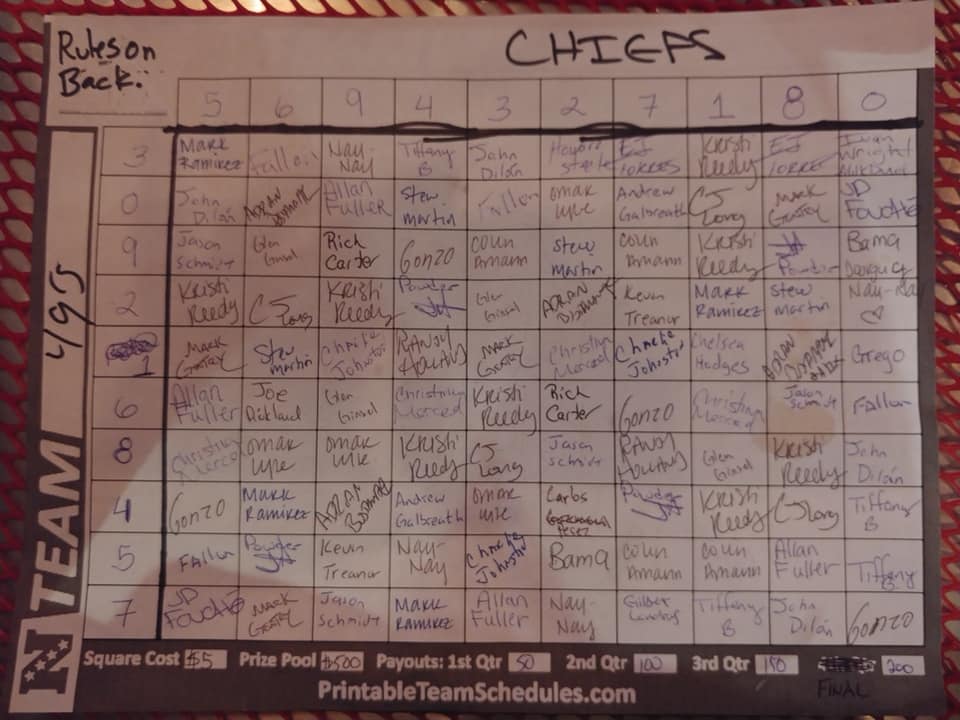 Rules on
Back.
CHIEFS
5 6 9 4 3 2 7 1 8 0
3 Mark Ramirez Fallon Nay-Nay Tiffany B John Dilán Steele EJ TORRES Kristi Reedy EJ TORRES Wright
0 John Dilán ADRAN Allan Fuller Stew martin Fallon omar Andrew Galbreath CJ Long Mark JD
9 Jason Schmidt Glen Rich Carter Gonzo Colin Amann Stew martin Colin Amann Kristi Reedy Powder Bama
2 Kristi Reedy CJ Long Kristi Reedy Powder Glen ADRAN Kevin Treanor Mark Ramirez Stew martin Nay-Nay
1 Mark Stew martin Charlie Johnston RANDY Mark Christina Merced Charlie Johnston Chelsea Hodges ADRAN Grego
6 Allan Fuller Joe Glen Christina Merced Kristi Reedy Rich Carter Gonzo Christina Merced Jason Schmidt Fallon
8 Christina Merced omar omar Kristi Reedy CJ Long Jason Schmidt RANDY Glen Kristi Reedy John Dilán
4 Gonzo Mark Ramirez ADRAN Andrew Galbreath omar Carlos Perez Powder Kristi Reedy CJ Long Tiffany B
5 Fallon Powder Kevin Treanor Nay-Nay Charlie Johnston Bama Colin Amann Colin Amann Allan Fuller Tiffany B
7 JD Mark Jason Schmidt Mark Ramirez Allan Fuller Nay-Nay Tiffany B John Dilán Gonzo
N TEAM 49ers
Square Cost $5 Prize Pool $500 Payouts: 1st Qtr 50 2nd Qtr 100 3rd Qtr 150 FINAL 200
PrintableTeamSchedules.com